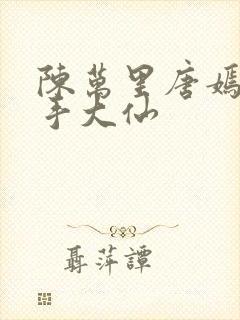 陳萬里唐嫣
手大仙
聶萍譚